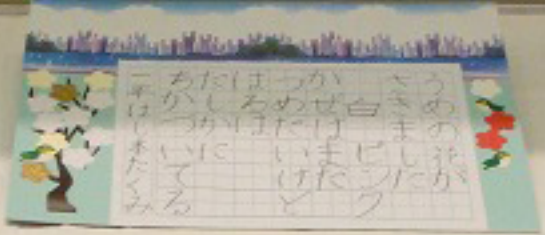 うめの花が
さきました
白ピンク
かぜはまだ
つめたいけど
はるは
たしかに
ちかづいてる